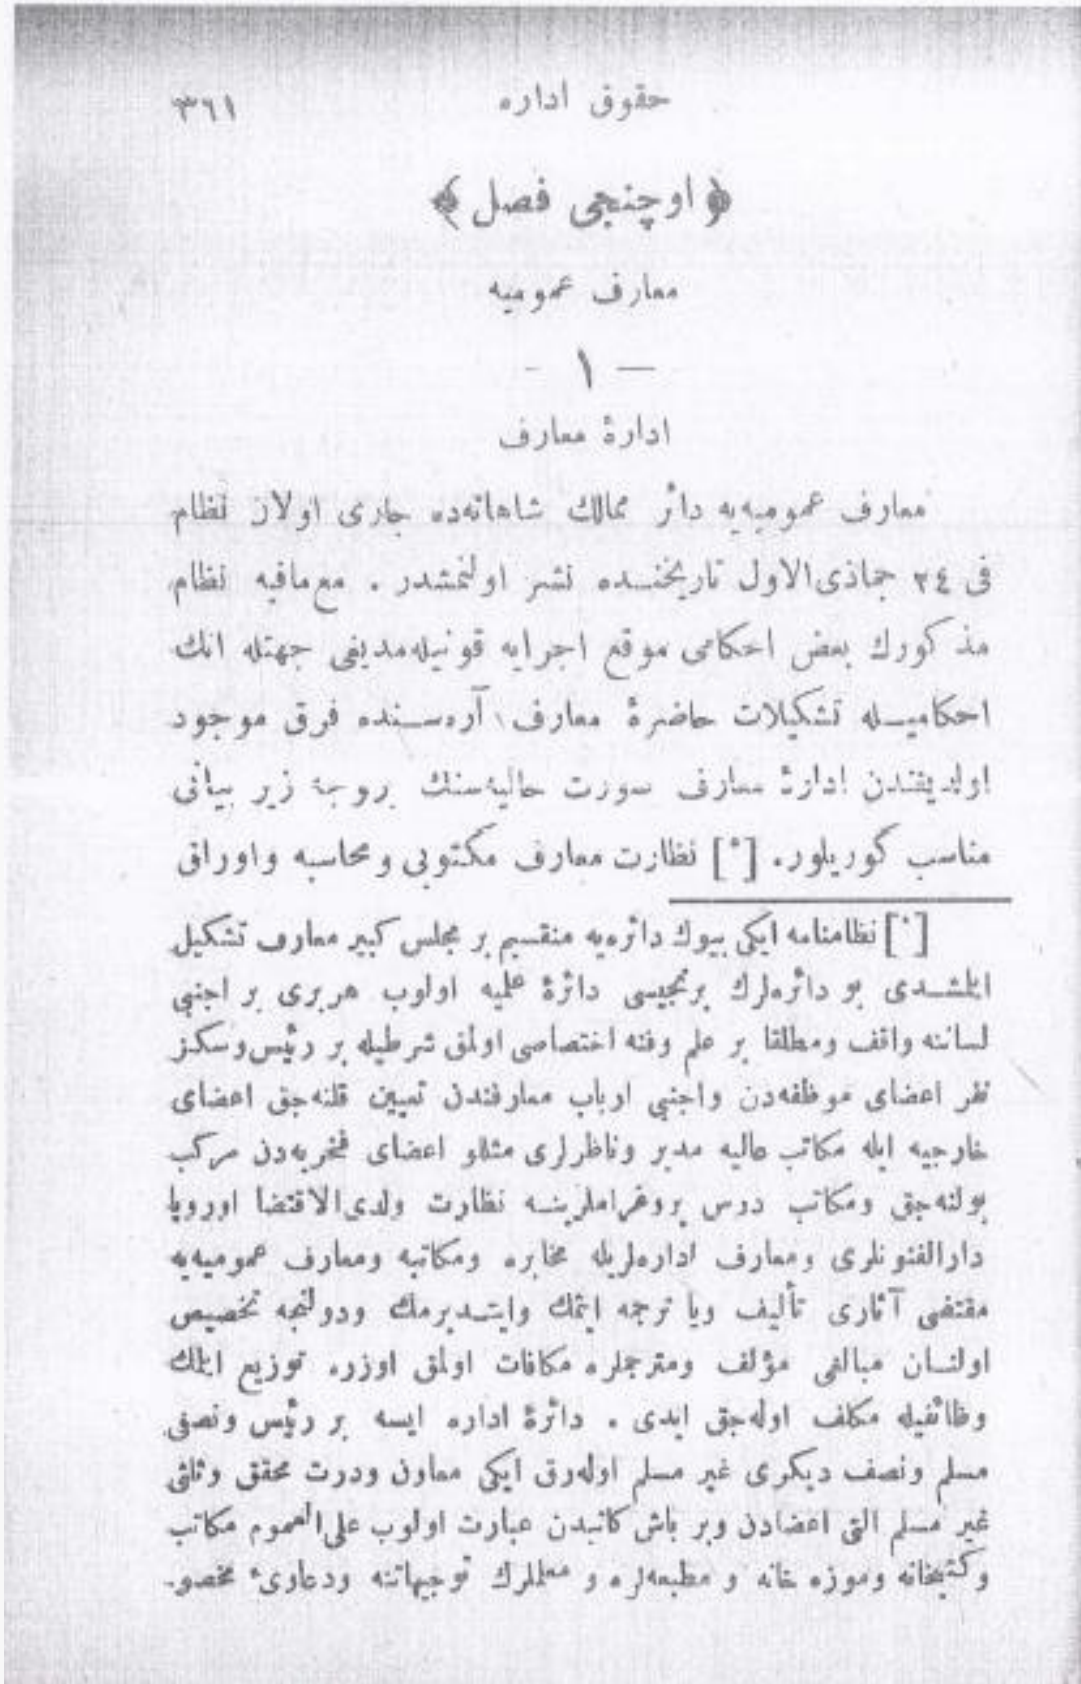 حقوق اداره ٣٦١
﴿ اوچنجی فصل ﴾
معارف عمومیه
— ١ -
ادارۀ معارف
معارف عمومیه‌یه دائر ممالك شاهانه‌ده جاری اولان نظام
فی ٢٤ جماذی‌الاول تاریخنـده نشر اولنمشدر . مع‌مافیه نظام
مذکورك بعض احکامی موقع اجرایه قونیله‌مدیغی جهتله انك
احکامیـله تشکیلات حاضرۀ معارف آره‌سـنده فرق موجود
اولدیغندن ادارۀ معارف صورت حالیه‌سنك بروجۀ زیر بیانی
مناسب کوریلور. [*] نظارت معارف مکتوبی ومحاسبه واوراق
[*] نظامنامه ایکی بیوك دائره‌یه منقسیم بر مجلس کبیر معارف تشکیل
ایتمشـدی بو دائره‌لرك برنجیسی دائرۀ علمیه اولوب هربری بر اجنبی
لساننه واقف ومطلقا بر علم وفنه اختصاصی اولمق شرطیله بر رئیس وسکز
نفر اعضای موظفه‌دن واجنبی ارباب معارفندن تعیین قلنه‌جق اعضای
خارجیه ایله مکاتب عالیه مدیر وناظرلری مثللو اعضای فخریه‌دن مرکب
بولنه‌جق ومکاتب درس پروغراملرینـه نظارت ولدی‌الاقتضا اوروپا
دارالفنونلری ومعارف اداره‌لریله مخابره ومکاتبه ومعارف عمومیه‌یه
مقتضی آثاری تألیف ویا ترجمه ایتمك وایتـدیرمك ودولتجه تخصیص
اولنـان مبالغی مؤلف ومترجملره مکافات اولمق اوزره توزیع ایتمك
وظائفیله مکلف اوله‌جق ایدی . دائرۀ اداره ایسه بر رئیس ونصفی
مسلم ونصف دیکری غیر مسلم اوله‌رق ایکی معاون ودرت محقق وثلثی
غیر مسلم التی اعضادن وبر باش کاتبدن عبارت اولوب علی‌العموم مکاتب
وکتبخانه وموزه خانه و مطبعه‌لره و معلملرك توجیهاتنه ودعاوئ مخصو-